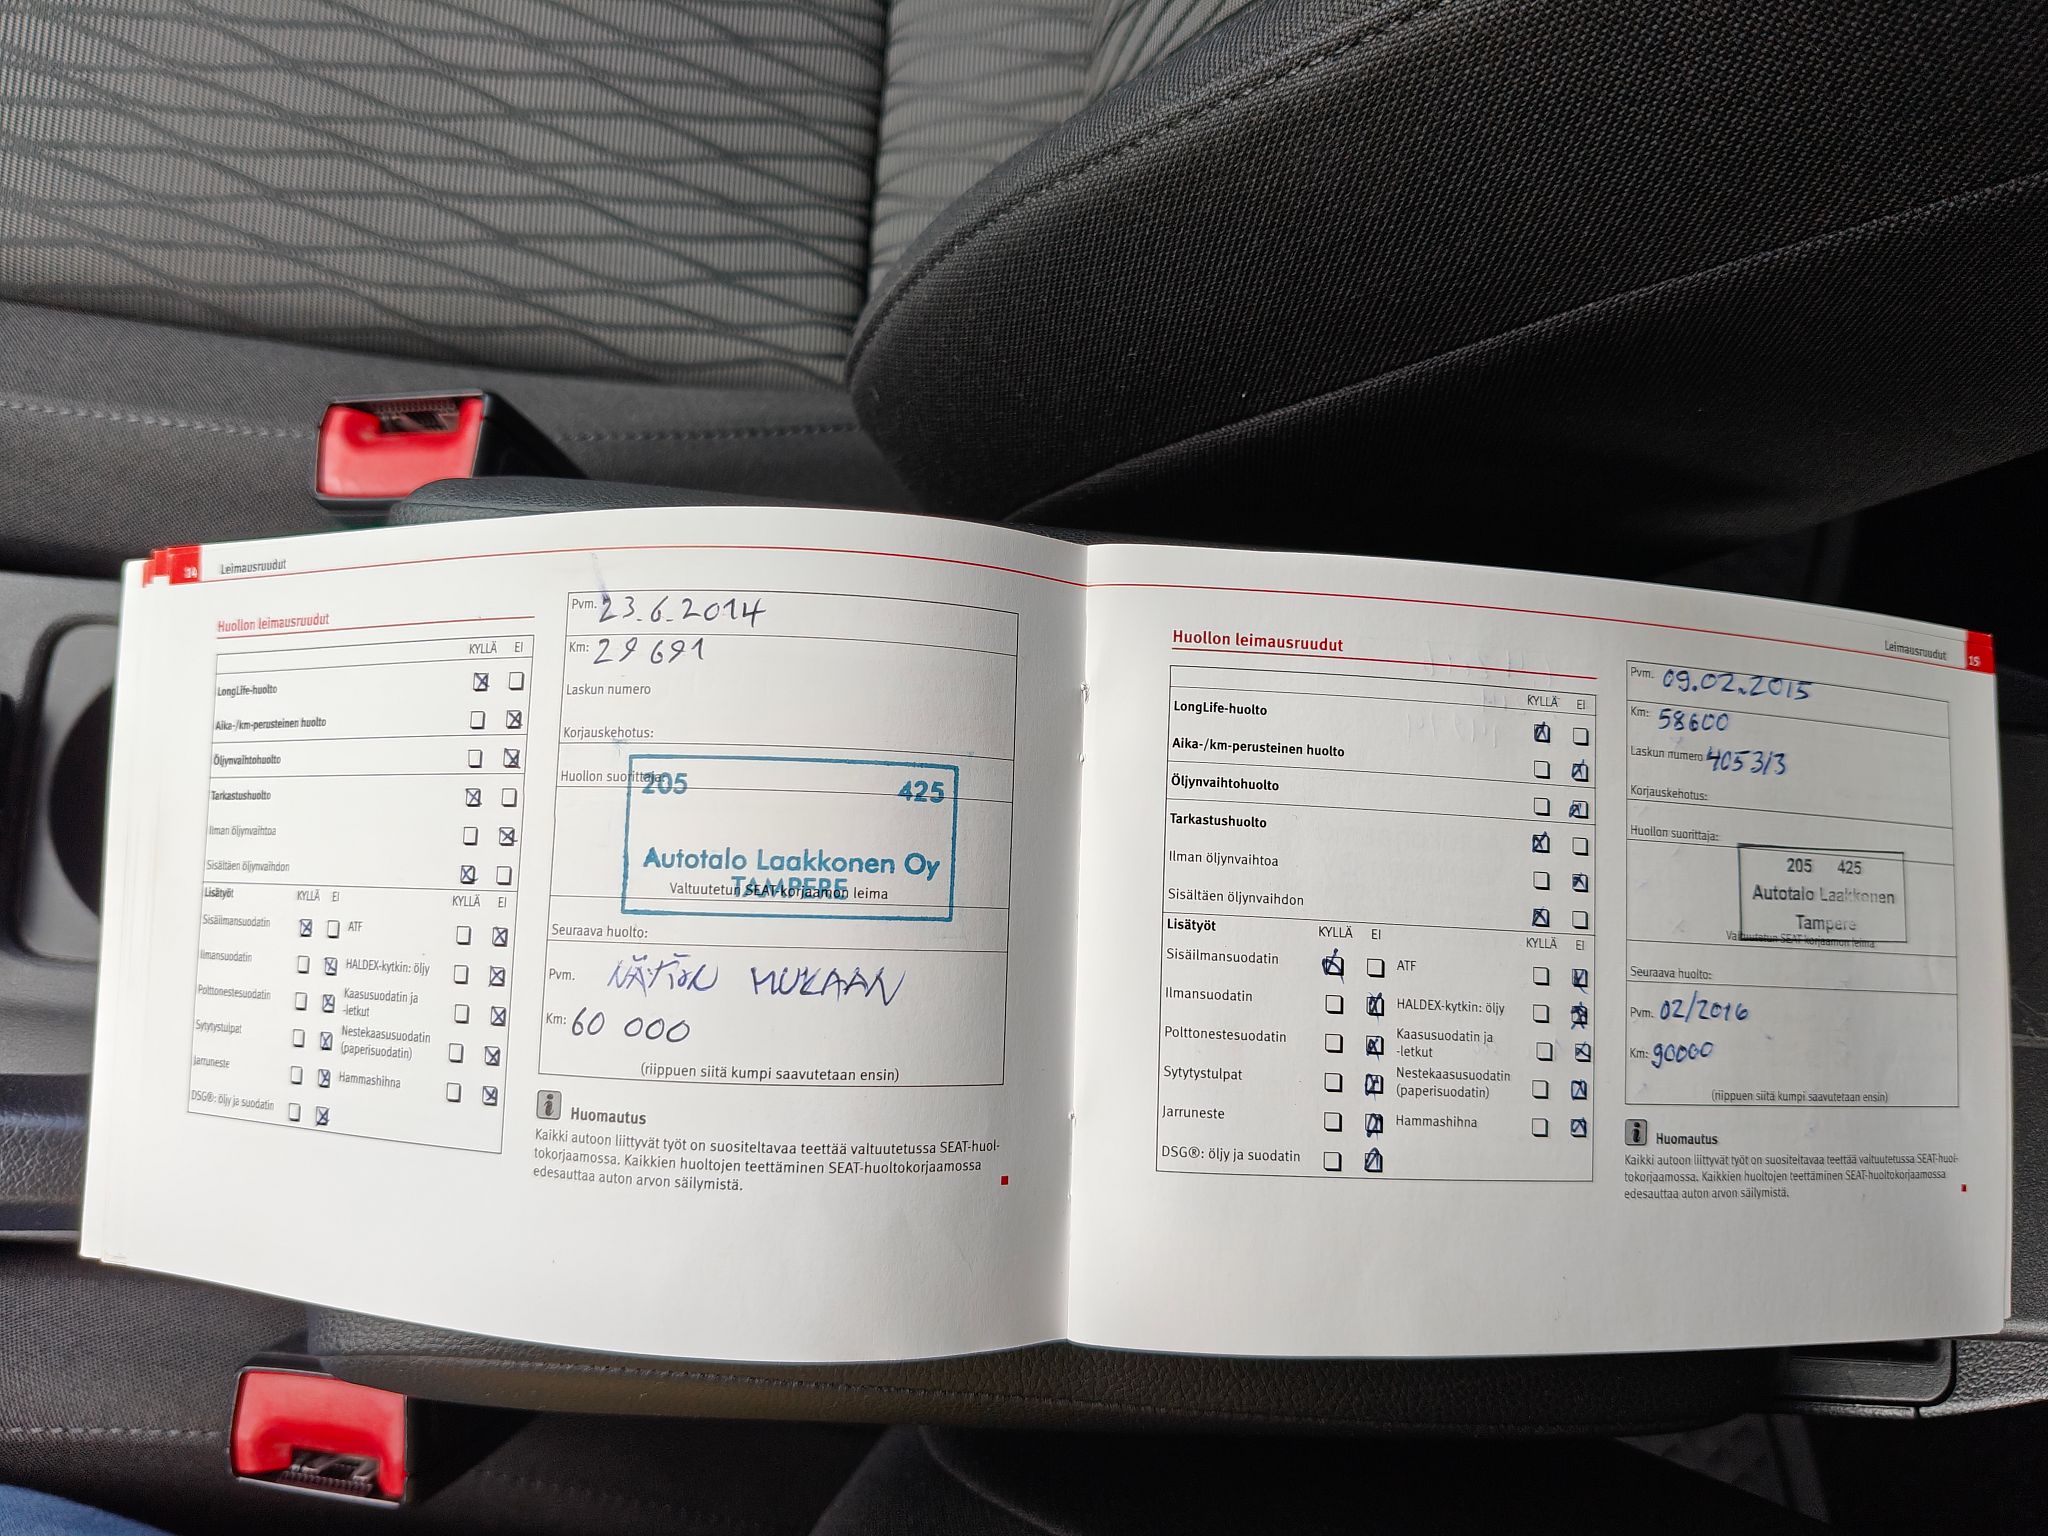 14 Leimausruudut
Huollon leimausruudut
KYLLÄ EI
LongLife-huolto
Aika-/km-perusteinen huolto
Öljynvaihtohuolto
Tarkastushuolto
Ilman öljynvaihtoa
Sisältäen öljynvaihdon
Lisätyöt KYLLÄ EI KYLLÄ EI
Sisäilmansuodatin ATF
Ilmansuodatin HALDEX-kytkin: öljy
Polttonestesuodatin Kaasusuodatin ja
-letkut
Sytytystulpat Nestekaasusuodatin
(paperisuodatin)
Jarruneste Hammashihna
DSG®: öljy ja suodatin
Pvm. 23.6.2014
Km: 29 691
Laskun numero
Korjauskehotus:
Huollon suorittaja:
205 425
Autotalo Laakkonen Oy
TAMPERE
Valtuutetun SEAT-korjaamon leima
Seuraava huolto:
Pvm. NÄYTÖN MUKAAN
Km: 60 000
(riippuen siitä kumpi saavutetaan ensin)
i Huomautus
Kaikki autoon liittyvät työt on suositeltavaa teettää valtuutetussa SEAT-huol-
tokorjaamossa. Kaikkien huoltojen teettäminen SEAT-huoltokorjaamossa
edesauttaa auton arvon säilymistä.
Leimausruudut 15
Huollon leimausruudut
KYLLÄ EI
LongLife-huolto
Aika-/km-perusteinen huolto
Öljynvaihtohuolto
Tarkastushuolto
Ilman öljynvaihtoa
Sisältäen öljynvaihdon
Lisätyöt KYLLÄ EI KYLLÄ EI
Sisäilmansuodatin ATF
Ilmansuodatin HALDEX-kytkin: öljy
Polttonestesuodatin Kaasusuodatin ja
-letkut
Sytytystulpat Nestekaasusuodatin
(paperisuodatin)
Jarruneste Hammashihna
DSG®: öljy ja suodatin
Pvm. 09.02.2015
Km: 58600
Laskun numero 4053/3
Korjauskehotus:
Huollon suorittaja:
205 425
Autotalo Laakkonen
Tampere
Valtuutetun SEAT-korjaamon leima
Seuraava huolto:
Pvm. 02/2016
Km: 90000
(riippuen siitä kumpi saavutetaan ensin)
i Huomautus
Kaikki autoon liittyvät työt on suositeltavaa teettää valtuutetussa SEAT-huol-
tokorjaamossa. Kaikkien huoltojen teettäminen SEAT-huoltokorjaamossa
edesauttaa auton arvon säilymistä.